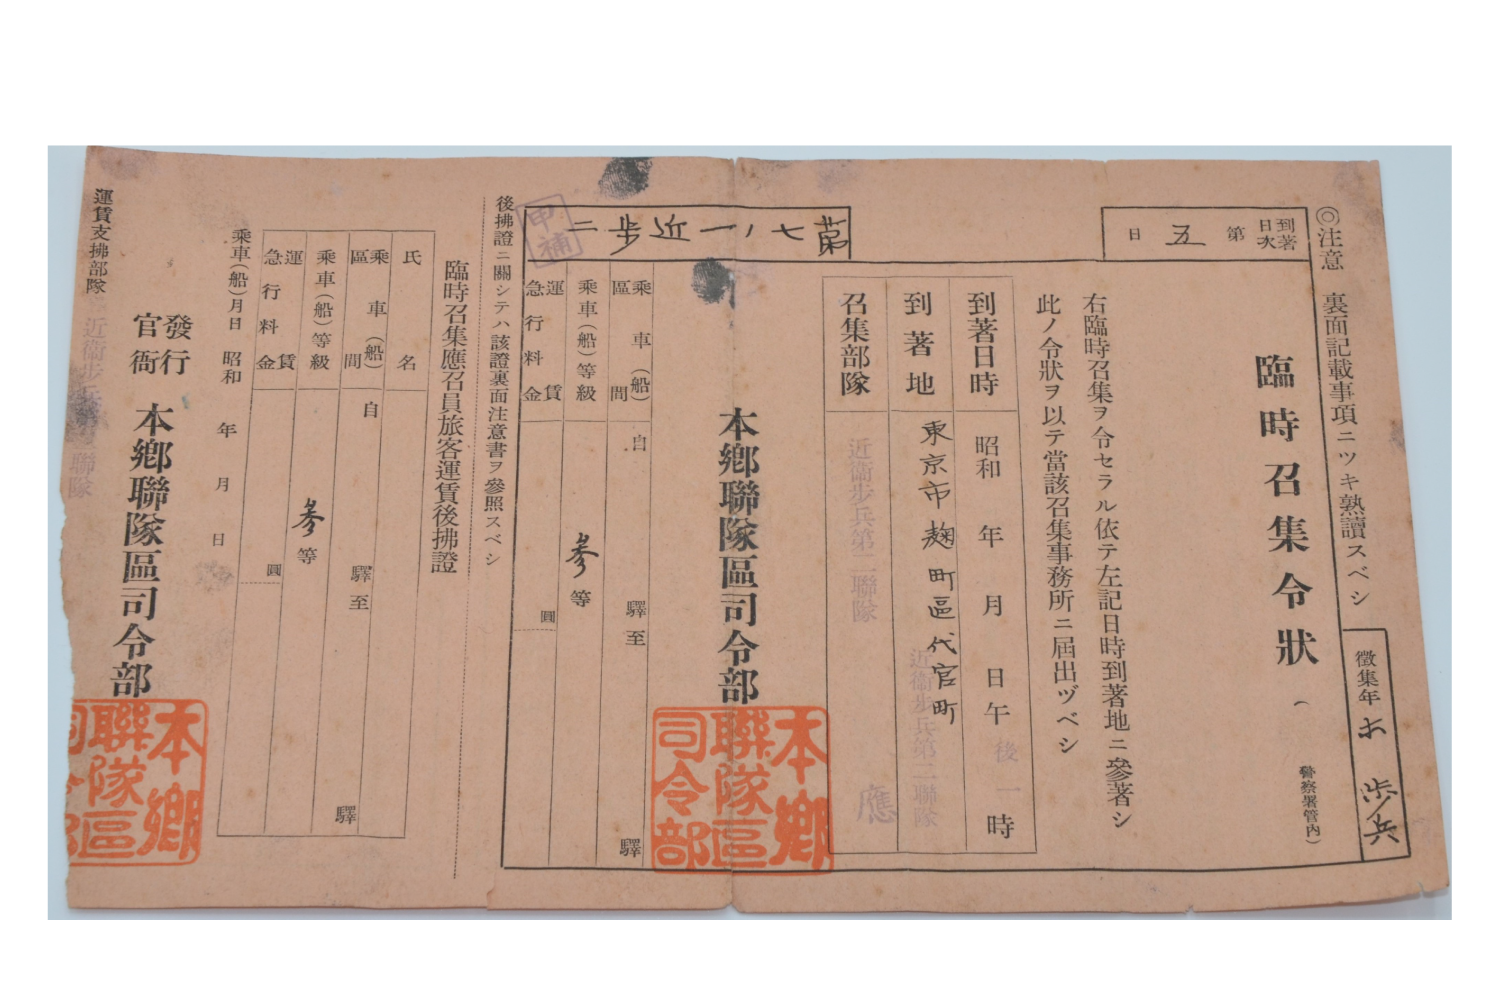 ◎注意 裏面記載事項ニツキ熟讀スベシ
徵集年 歩兵
到著日次 第五日
臨時召集令狀
( 警察署管内)
右臨時召集ヲ令セラル依テ左記日時到著地ニ參著シ
此ノ令狀ヲ以テ當該召集事務所ニ屆出ヅベシ
到著日時 昭和 年 月 日午後一時
到著地 東京市麹町區代官町
近衞步兵第二聯隊
召集部隊 近衞步兵第二聯隊
應
第七ノ一近歩二
甲補
本鄕聯隊區司令部
本鄕聯隊區司令部
乘車(船)區間 自 驛至 驛
乘車(船)等級 參等
運賃
急行料金 圓
後拂證ニ關シテハ該證裏面注意書ヲ參照スベシ
臨時召集應召員旅客運賃後拂證
氏名
乘車(船)區間 自 驛至 驛
乘車(船)等級 參等
運賃
急行料金 圓
乘車(船)月日 昭和 年 月 日
發行官衙 本鄕聯隊區司令部
本鄕聯隊區司令部
運賃支拂部隊 近衞步兵第二聯隊